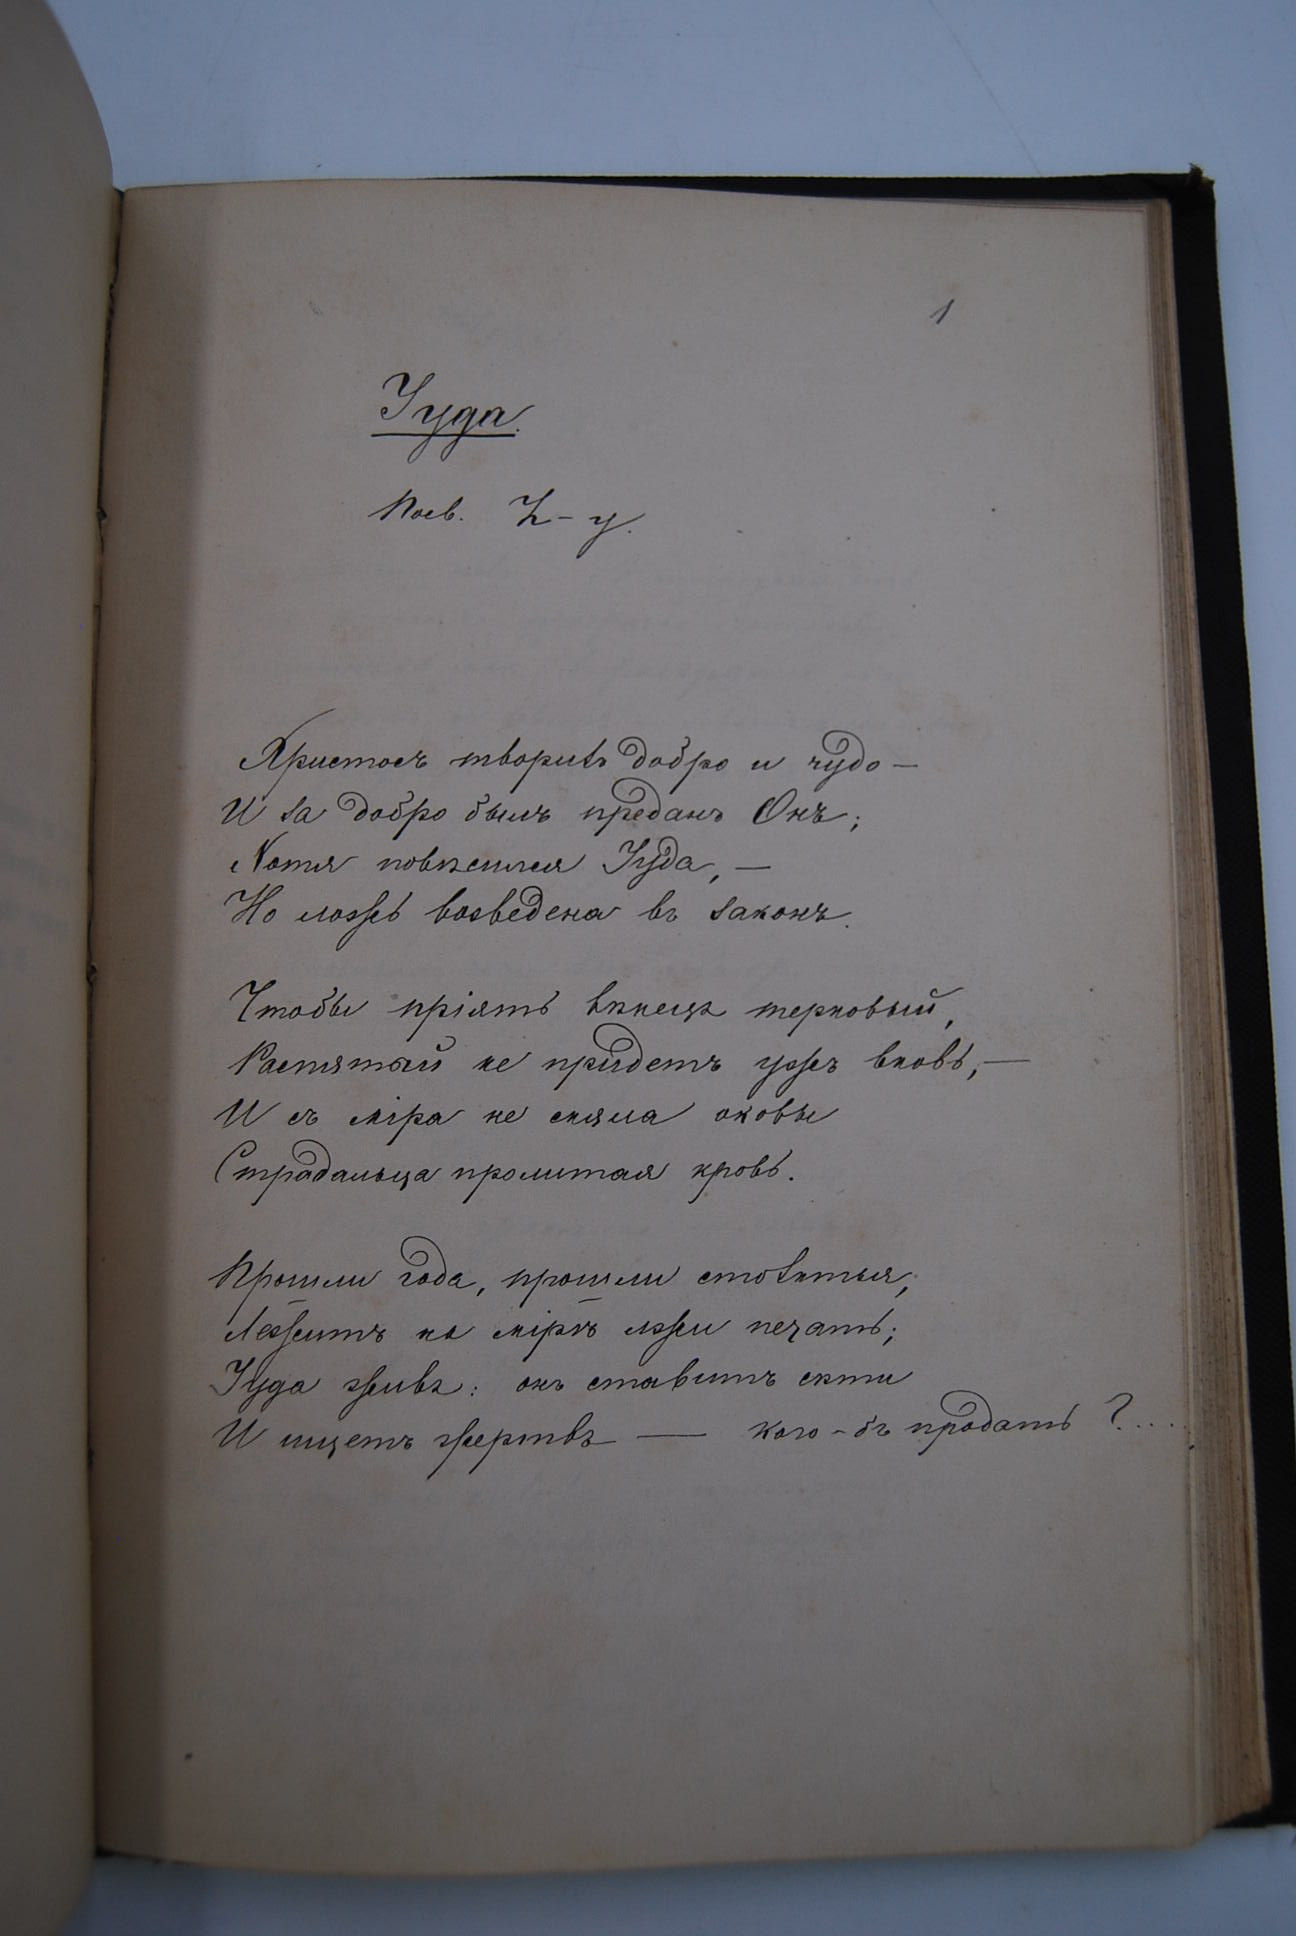 1
Іуда.
Посв. Z-у.
Христосъ творитъ добро и чудо —
И за добро былъ преданъ Онъ;
Хотя повѣсился Іуда, —
Но ложь возведена въ законъ.
Чтобы пріять вѣнецъ терновый,
Распятый не придетъ ужъ вновь, —
И съ міра не сняла оковы
Страдальца пролитая кровь.
Прошли года, прошли столѣтья,
Лежитъ на мірѣ лжи печать;
Іуда живъ: онъ ставитъ сѣти
И ищетъ жертвъ — кого-бъ продать?...